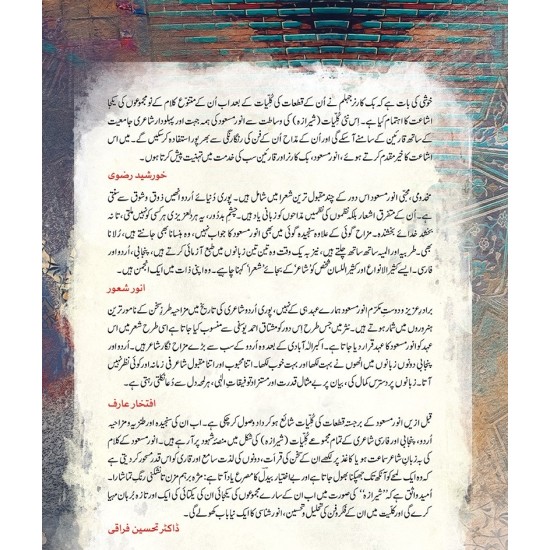 خوشی کی بات ہے کہ بک کارنر جہلم نے اُن کے قطعات کی کلیات کے بعد اب اُن کے متنوع کلام کے نو مجموعوں کی یکجا
اشاعت کا اہتمام کیا ہے۔ اس نئی کلیات (شیرازہ) کی وساطت سے انور مسعود کی ہمہ جہت اور پہلودار شاعری جامعیت
کے ساتھ قارئین کے سامنے آسکے گی اور اُن کے مداح اُن کے فن کی رنگارنگی سے بھرپور استفادہ کرسکیں گے۔ میں اس
اشاعت کا خیر مقدم کرتے ہوئے، بک کارنر اور قارئین سب کی خدمت میں تہنیت پیش کرتا ہوں۔
خورشید رضوی
مخدومی، محبی انور مسعود اس دور کے چند مقبول ترین شعرا میں شامل ہیں۔ پوری دُنیائے اُردو انھیں ذوق و شوق سے سنتی
ہے۔ اُن کے متفرق اشعار بلکہ نظموں کی نظمیں مداحوں کو زبانی یاد ہیں۔ چشمِ بددُور، یہ ہردلعزیزی ہر کسی کو نہیں ملتی، تا نہ
بخشد خدائے بخشندہ۔ مزاح گوئی کے علاوہ سنجیدہ گوئی میں بھی انور مسعود کا جواب نہیں، وہ ہنسانا بھی جانتے ہیں، رُلانا
بھی۔ طربیہ اور المیہ ساتھ ساتھ چلتے ہیں، نیز یہ بیک وقت وہ تین تین زبانوں میں طبع آزمائی کرتے ہیں، پنجابی، اُردو اور
فارسی۔ ایسے کثیر الانواع اور کثیر اللسان شخص کو 'شاعر' کے بجائے 'شعرا' کہنا چاہیے۔ وہ اپنی ذات میں ایک انجمن ہیں۔
انور شعور
برادرِ عزیز و دوستِ مکرّم انور مسعود ہمارے عہد ہی کے نہیں، پوری اُردو شاعری کی تاریخ میں مزاحیہ طرزِ سخن کے نامور ترین
ہنروروں میں شمار ہوتے ہیں۔ نثر میں جس طرح اس دور کو مشتاق احمد یوسفی سے منسوب کیا جاتا ہے اسی طرح شعر میں اس
عہد کو انور مسعود کا عہد قرار دیا جاتا ہے۔ اکبر الٰہ آبادی کے بعد وہ اُردو کے سب سے بڑے مزاح نگار شاعر ہیں۔ اُردو اور
پنجابی دونوں زبانوں میں انھوں نے بہت لکھا اور بہت خوب لکھا۔ اتنا محبوب اور اتنا مقبول شاعر فی زمانہ اور کوئی نظر نہیں
آتا۔ زبانوں پر دسترس کمال کی، بیان پر بے مثال قدرت اور مستزاد توفیقاتِ الٰہی، ہر لمحہ دل سے دُعا نکلتی رہتی ہے۔
افتخار عارف
قبل ازیں انور مسعود کے برجستہ قطعات کی کلیات شائع ہو کر داد وصول کر چکی ہے۔ اب ان کی سنجیدہ اور طنزیہ و مزاحیہ
اُردو، پنجابی اور فارسی شاعری کے تمام مجموعے کلیات (شیرازہ) کی شکل میں منصۂ شہود پر آ رہے ہیں۔ انور مسعود کے کلام
کی بہ زبانِ شاعر سماعت ہو یا کاغذ پر لکھے ان کے سخن کی قرأت، دونوں کی لذت سامع اور قاری کو اس قدر مسحور کر دیتی ہے
کہ وہ ایک لمحے کو آنکھ تک جھپکنا بھول جاتا ہے اور بے اختیار بیدل کا مصرع یاد آتا ہے: مژہ برہم مزن تا نشکنی رنگِ تماشا را۔
اُمیدِ واثق ہے کہ "شیرازہ" کی صورت میں اب ان کے سارے مجموعوں کی یکجائی ان کی یکتائی کی ایک اور تازہ برہان مہیا
کرے گی اور کلیت میں ان کے فکر و فن کی تحلیل و تحسین، انور شناسی کا ایک نیا باب کھولے گی۔
ڈاکٹر تحسین فراقی